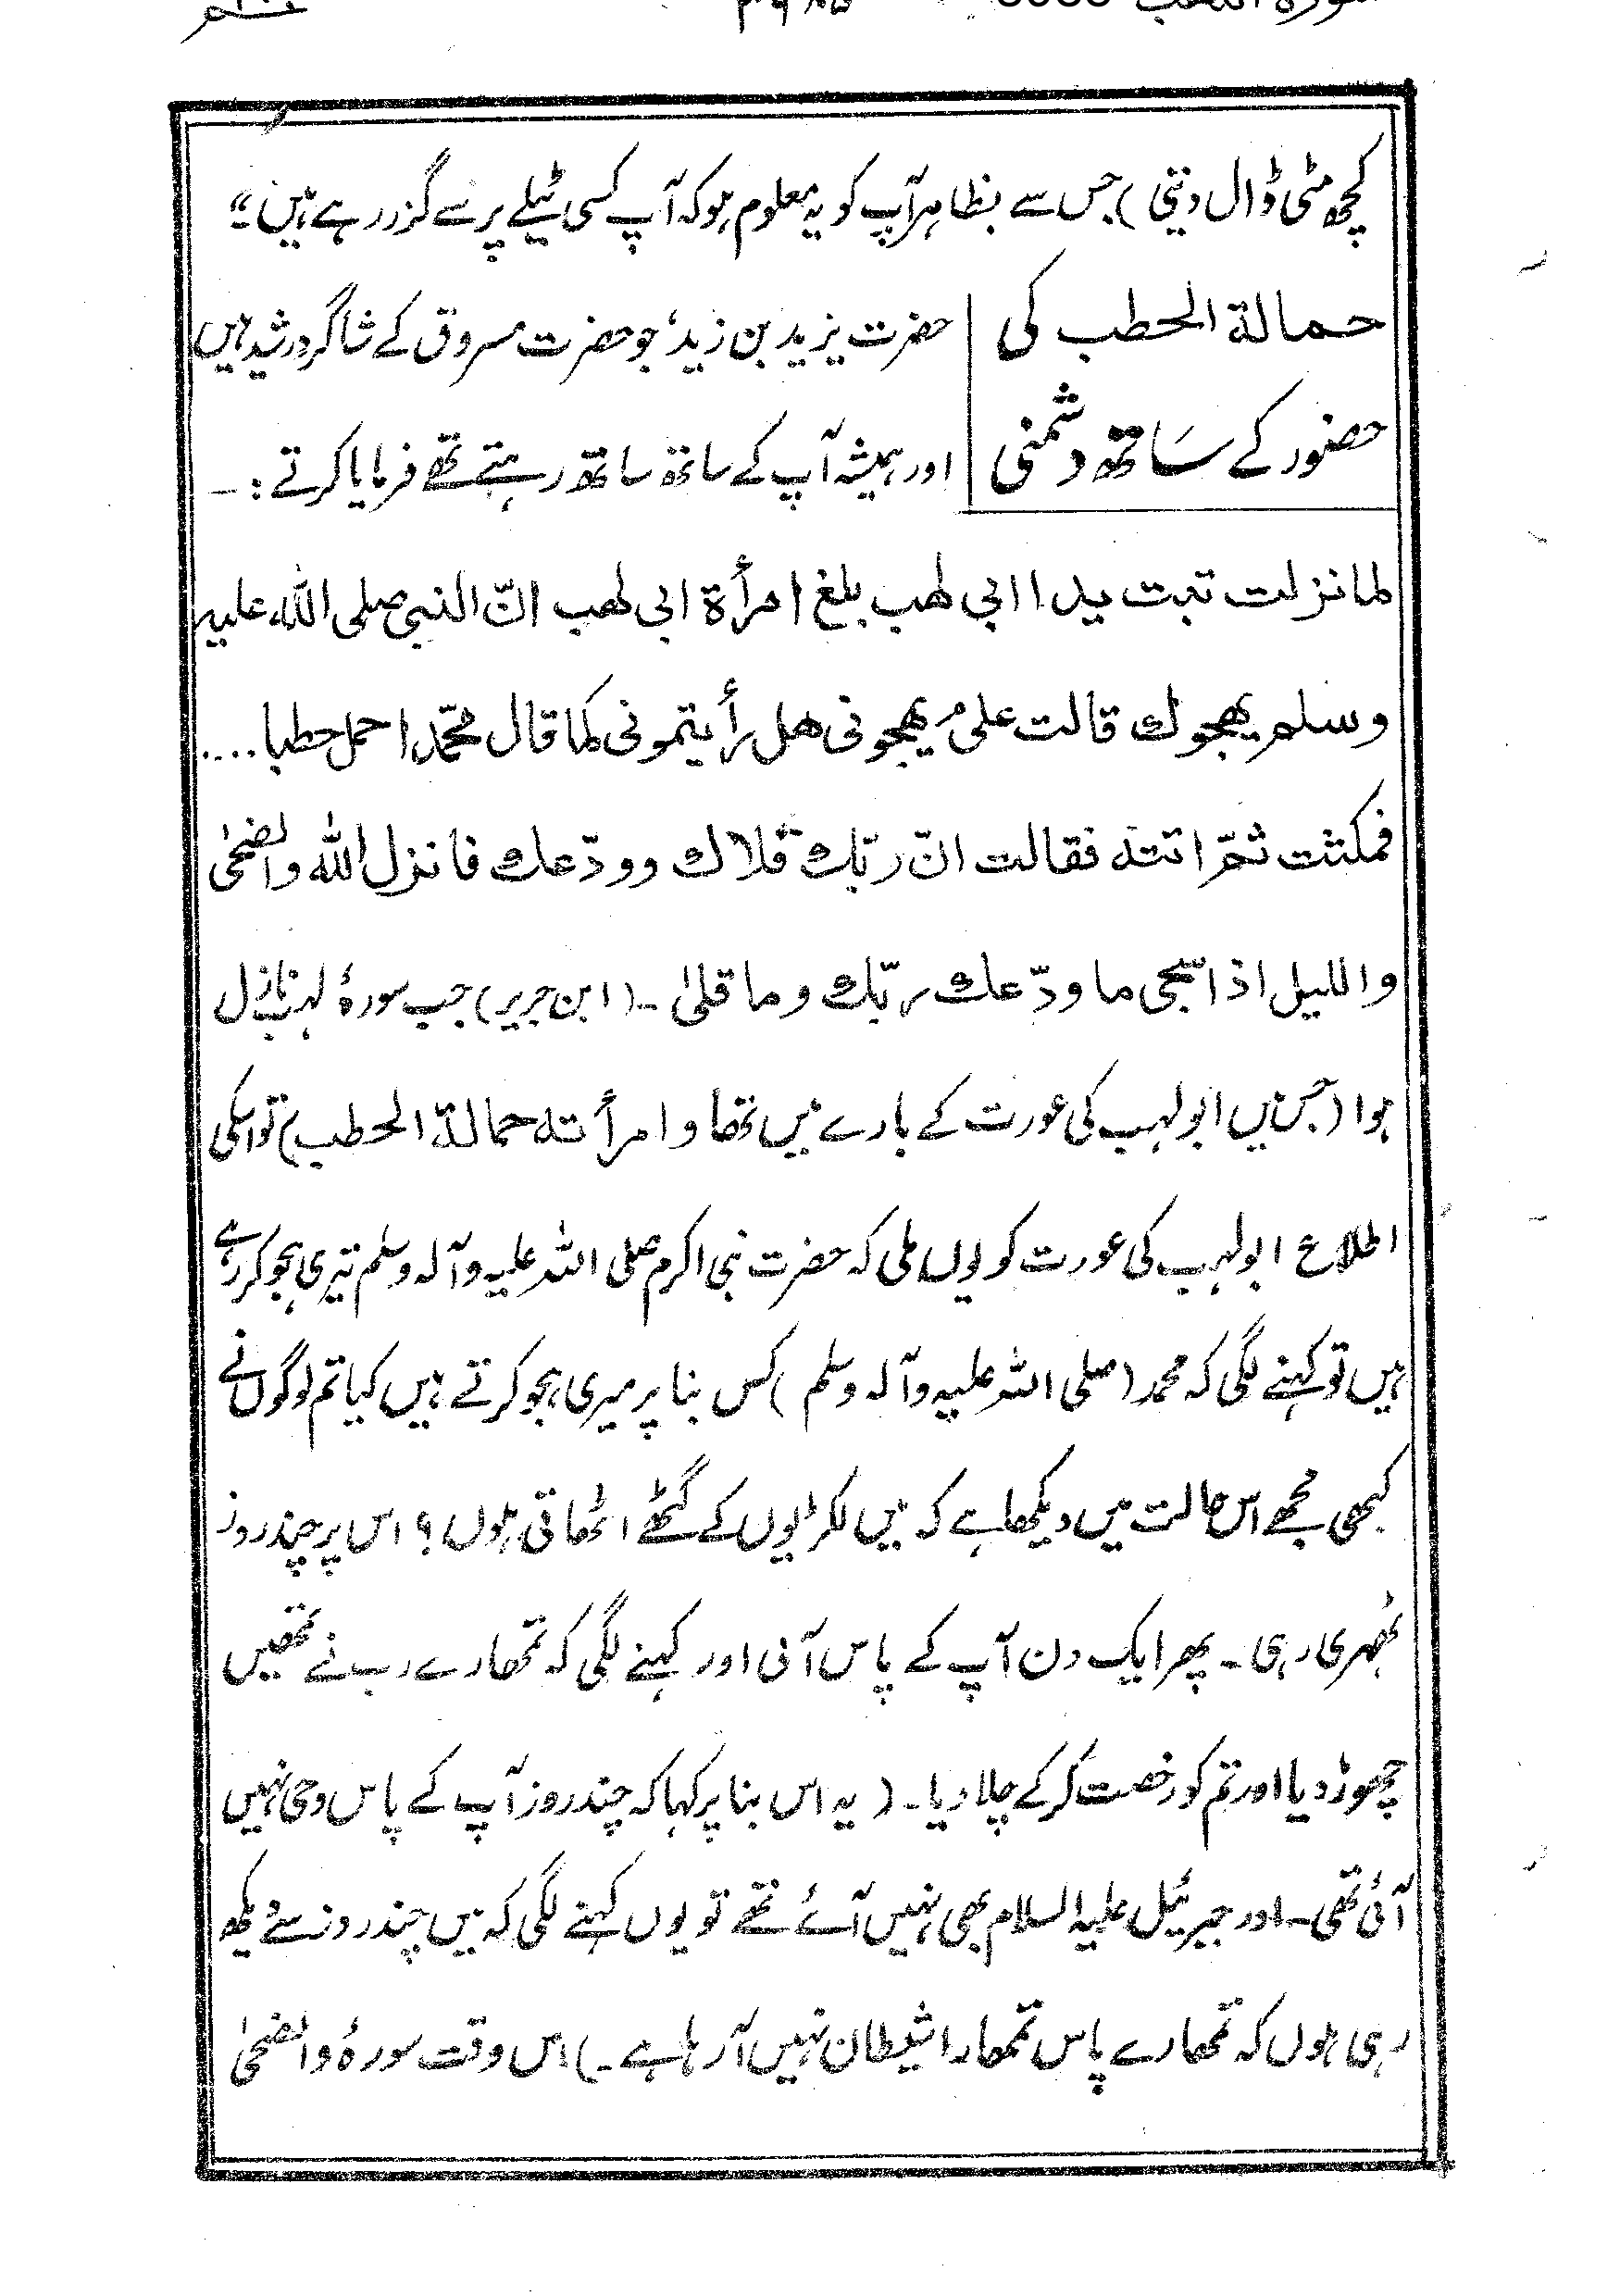 کچھ مٹی ڈال دیتی) جس سے بظاہر آپ کو یہ معلوم ہو کہ آپ کسی ٹیلے پر سے گزر رہے ہیں“
حمالۃ الحطب کی
حضور کے ساتھ دشمنی
حضرت یزید بن زید، جو حضرت مسروق کے شاگرد رشید ہیں
اور ہمیشہ آپ کے ساتھ ساتھ رہتے تھے فرمایا کرتے :۔
لما نزلت تبت یدا ابی لھب بلغ امرأۃ ابی لھب انّ النبی صلی اللہ علیہ
وسلم یھجوک قالت علیٰ م یھجونی ھل رأیتمونی کما قال محمّد احمل حطبا....
فمکثت ثمّ اتتہ فقالت انّ ربّک قلاک وودّعک فانزل اللہ والضحٰی
واللیل اذا سجٰی ما ودّعک ربّک وما قلیٰ ۔ (ابن جریر) جب سورۂ لہب نازل
ہوا (جس میں ابو لہب کی عورت کے بارے میں تھا وامرأتہ حمالۃ الحطب) تو اسکی
اطلاع ابولہب کی عورت کو یوں ملی کہ حضرت نبی اکرم صلی اللہ علیہ وآلہ وسلم تیری ہجو کر رہے
ہیں تو کہنے لگی کہ محمد (صلی اللہ علیہ وآلہ وسلم) کس بنا پر میری ہجو کرتے ہیں کیا تم لوگوں نے
کبھی مجھے اس حالت میں دیکھا ہے کہ میں لکڑیوں کے گٹھے اٹھاتی ہوں؟ اس پر چند روز
ٹھہری رہی ۔ پھر ایک دن آپ کے پاس آئی اور کہنے لگی کہ تمھارے رب نے تمھیں
چھوڑ دیا اور تم کو رخصت کر کے چلا دیا۔ (یہ اس بنا پر کہا کہ چند روز آپ کے پاس وحی نہیں
آئی تھی۔ اور جبرئیل علیہ السلام بھی نہیں آئے تھے تو یوں کہنے لگی کہ میں چند روز سے دیکھ
رہی ہوں کہ تمھارے پاس تمھارا شیطان نہیں آ رہا ہے۔) اس وقت سورۂ والضحٰی